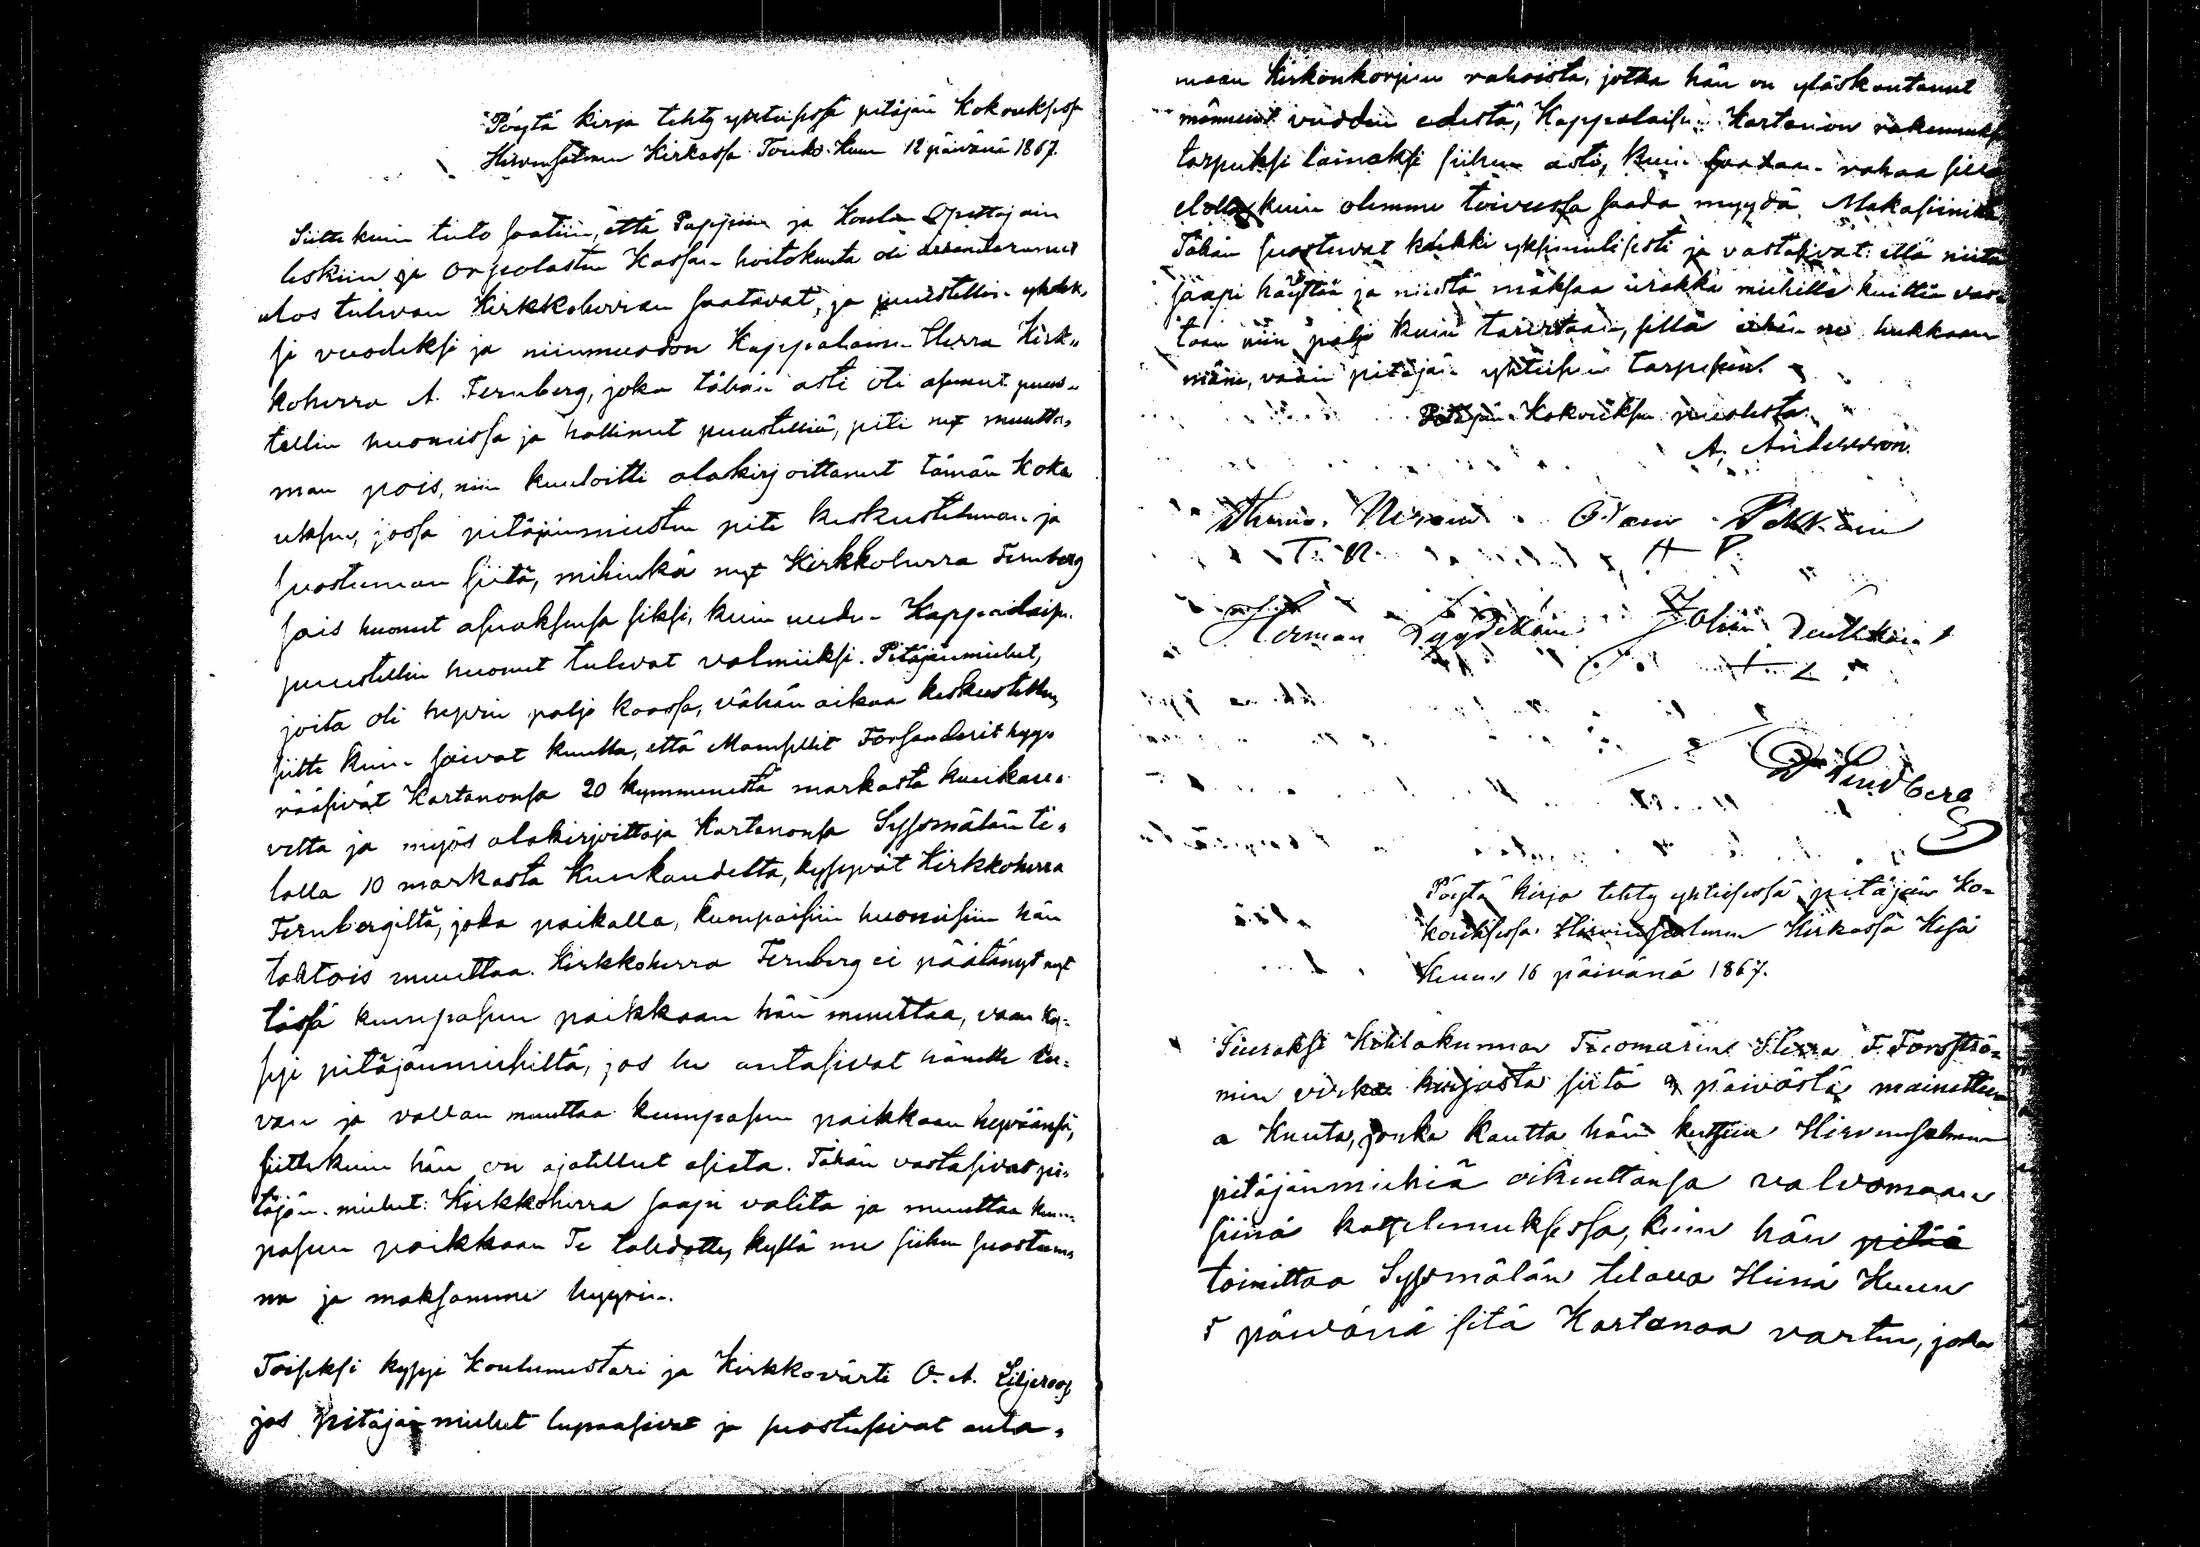 Pöytä kirja tehty yhteisessä pitäjän Kokouksessa
Hirvensalmen Kirkossa Touko Kuun 12 päivänä 1867.
Siitte kuin tieto saatiin, että Pappiin ja Koulun Opettajain
leskiin ja orpolasten Kassan hoitokunta oli
ulos tulevan Kirkkoherran saatavat, ja puustellin yhdek,,
si vuodeksi ja niinmuodon Kappalaisen Herra Kirk,,
koherra A. Fernberg, joka tähän asti oli asunut puus,,
tellin huoneissa ja hallinut puustelliä, piti nyt muutta,,
man pois, niin kuuloitti alakirjoittanut tämän koko
uksen, jossa pitäjänmiesten piti keskusteleman ja
suostuman siitä, mihinkä nyt Kirkkoherra Fernberg
sais huonet asuaksensa siksi, kuin uuden Kappalaisen
puustellin huonet tulevat valmiiksi. Pitäjänmiehet,
joita oli hyvin paljo koossa, vähän aikaa keskusteltuu,
siitte kuin saivat kuulla, että Mamsellit Forsanderit hyy,,
rääsivät Kartanonsa 20 kymmenestä markasta kuukau,,
vetta ja myös alakirjoittaja Kartanonsa Syssmälän ti,,
lalla 10 markasta Kuukaudelta, kysyvät Kirkkoherra
Fernbergiltä, joka paikalla, kumpaisiin huoneisiin hän
tahtois muuttaa. Kirkkoherra Fernberg ei päätänyt nyt
tässä kumpasen paikkaan hän muuttaa, vaan ky=
syi pitäjänmiehiltä, jos he antasivat hänelle lu=
van ja vallan muuttaa kumpasen paikkaan hyväänsä,
siittekuin hän on ajatellut asiata. Tähän vastasivat pi=
täjän miehet: Kirkkoherra saapi valita ja muuttaa kum=
pasen paikkaan Te tahdotte, kyllä me siihen suostum=
me ja maksamme hyyrin.
Toiseksi kysyi Koulumestari ja Kirkkovärti O. A. Liljeroos
jos pitäjän miehet lupaasivat ja suostusivat anta,,
maan Kirkonkorjun rahoista, jotka hän on yläskantanut
männeint vuoden edestä, Kappalaisen Kartanon rakennuksen
tarpuksi lainaksi siihen asti, kuin saadaan rahaa sillä
elolla kuin olemme toivossa saada myydä Makasiinista
Tähän suostuvat kaikki yksimielisesti ja vastasivat: että niitä
saapi käyttää ja niistä maksaa urakka miehille kuittia vas=
taan niin paljo kuin tarvitaan, sillä eihän ne hukkaan
mäne, vaan pitäjän yhteisiin tarpeisiin.
Pitäjän Kokouksen puolesta.
A. Andersson.
Herman Lyytikäin Johan
D Lindberg
Pöytä kirja tehty yhteisessä pitäjän Ko=
kouksessa Hirvensalmen Kirkossa Kesä
Kuun 16 päivänä 1867.
Seuraksi Kihlakunnan Tuomarin Herra F. Forsströ=
min virka kirjasta siitä 9 päivästä mainittu=
a Kuuta, jonka kautta hän kutsuu Hirvensalmen
pitäjänmiehiä oikeuttansa valvomaan
siinä katselmuksessa, kuin hän pitää
toimittaa Syssmälän tilalla Heinä Kuun
5 päivänä sitä Kartanoa varten, joka